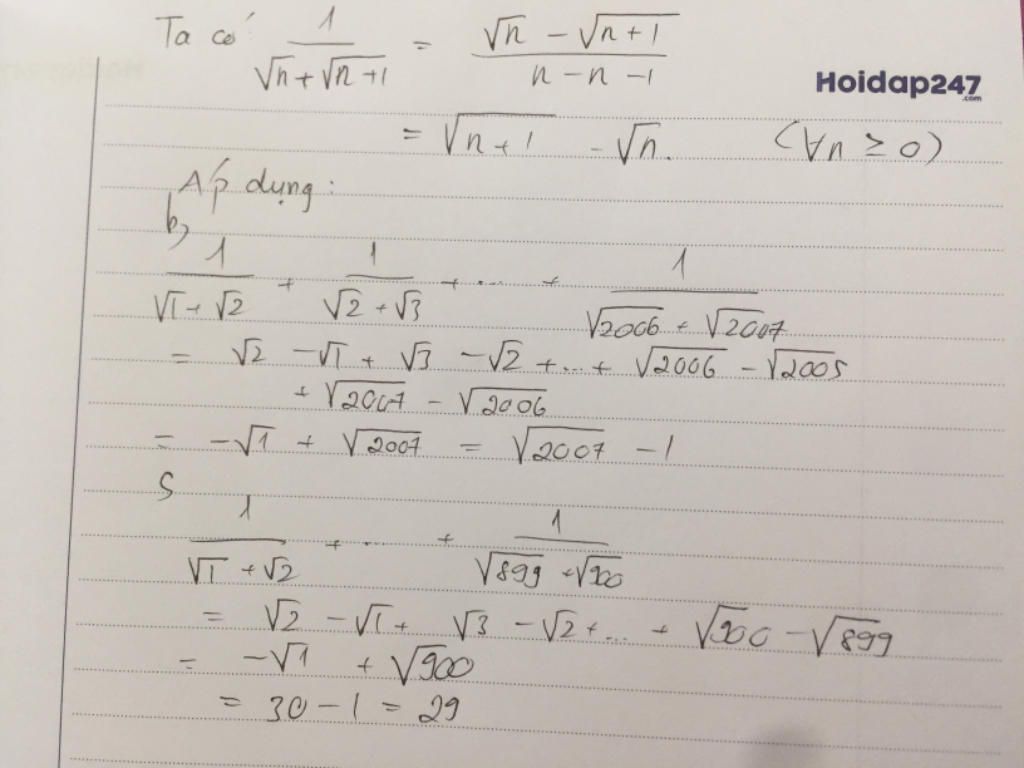 Ta có 1/(√n + √(n+1)) = (√n - √(n+1))/(n - n - 1)
Hoidap247
.com
= √(n+1) - √n. (∀n ≥ 0)
Áp dụng:
b,
1/(√1 + √2) + 1/(√2 + √3) + ... + 1/(√2006 + √2007)
= √2 - √1 + √3 - √2 + ... + √2006 - √2005
+ √2007 - √2006
= -√1 + √2007 = √2007 - 1
1/(√1 + √2) + ... + 1/(√899 + √900)
= √2 - √1 + √3 - √2 + ... + √900 - √899
= -√1 + √900
= 30 - 1 = 29